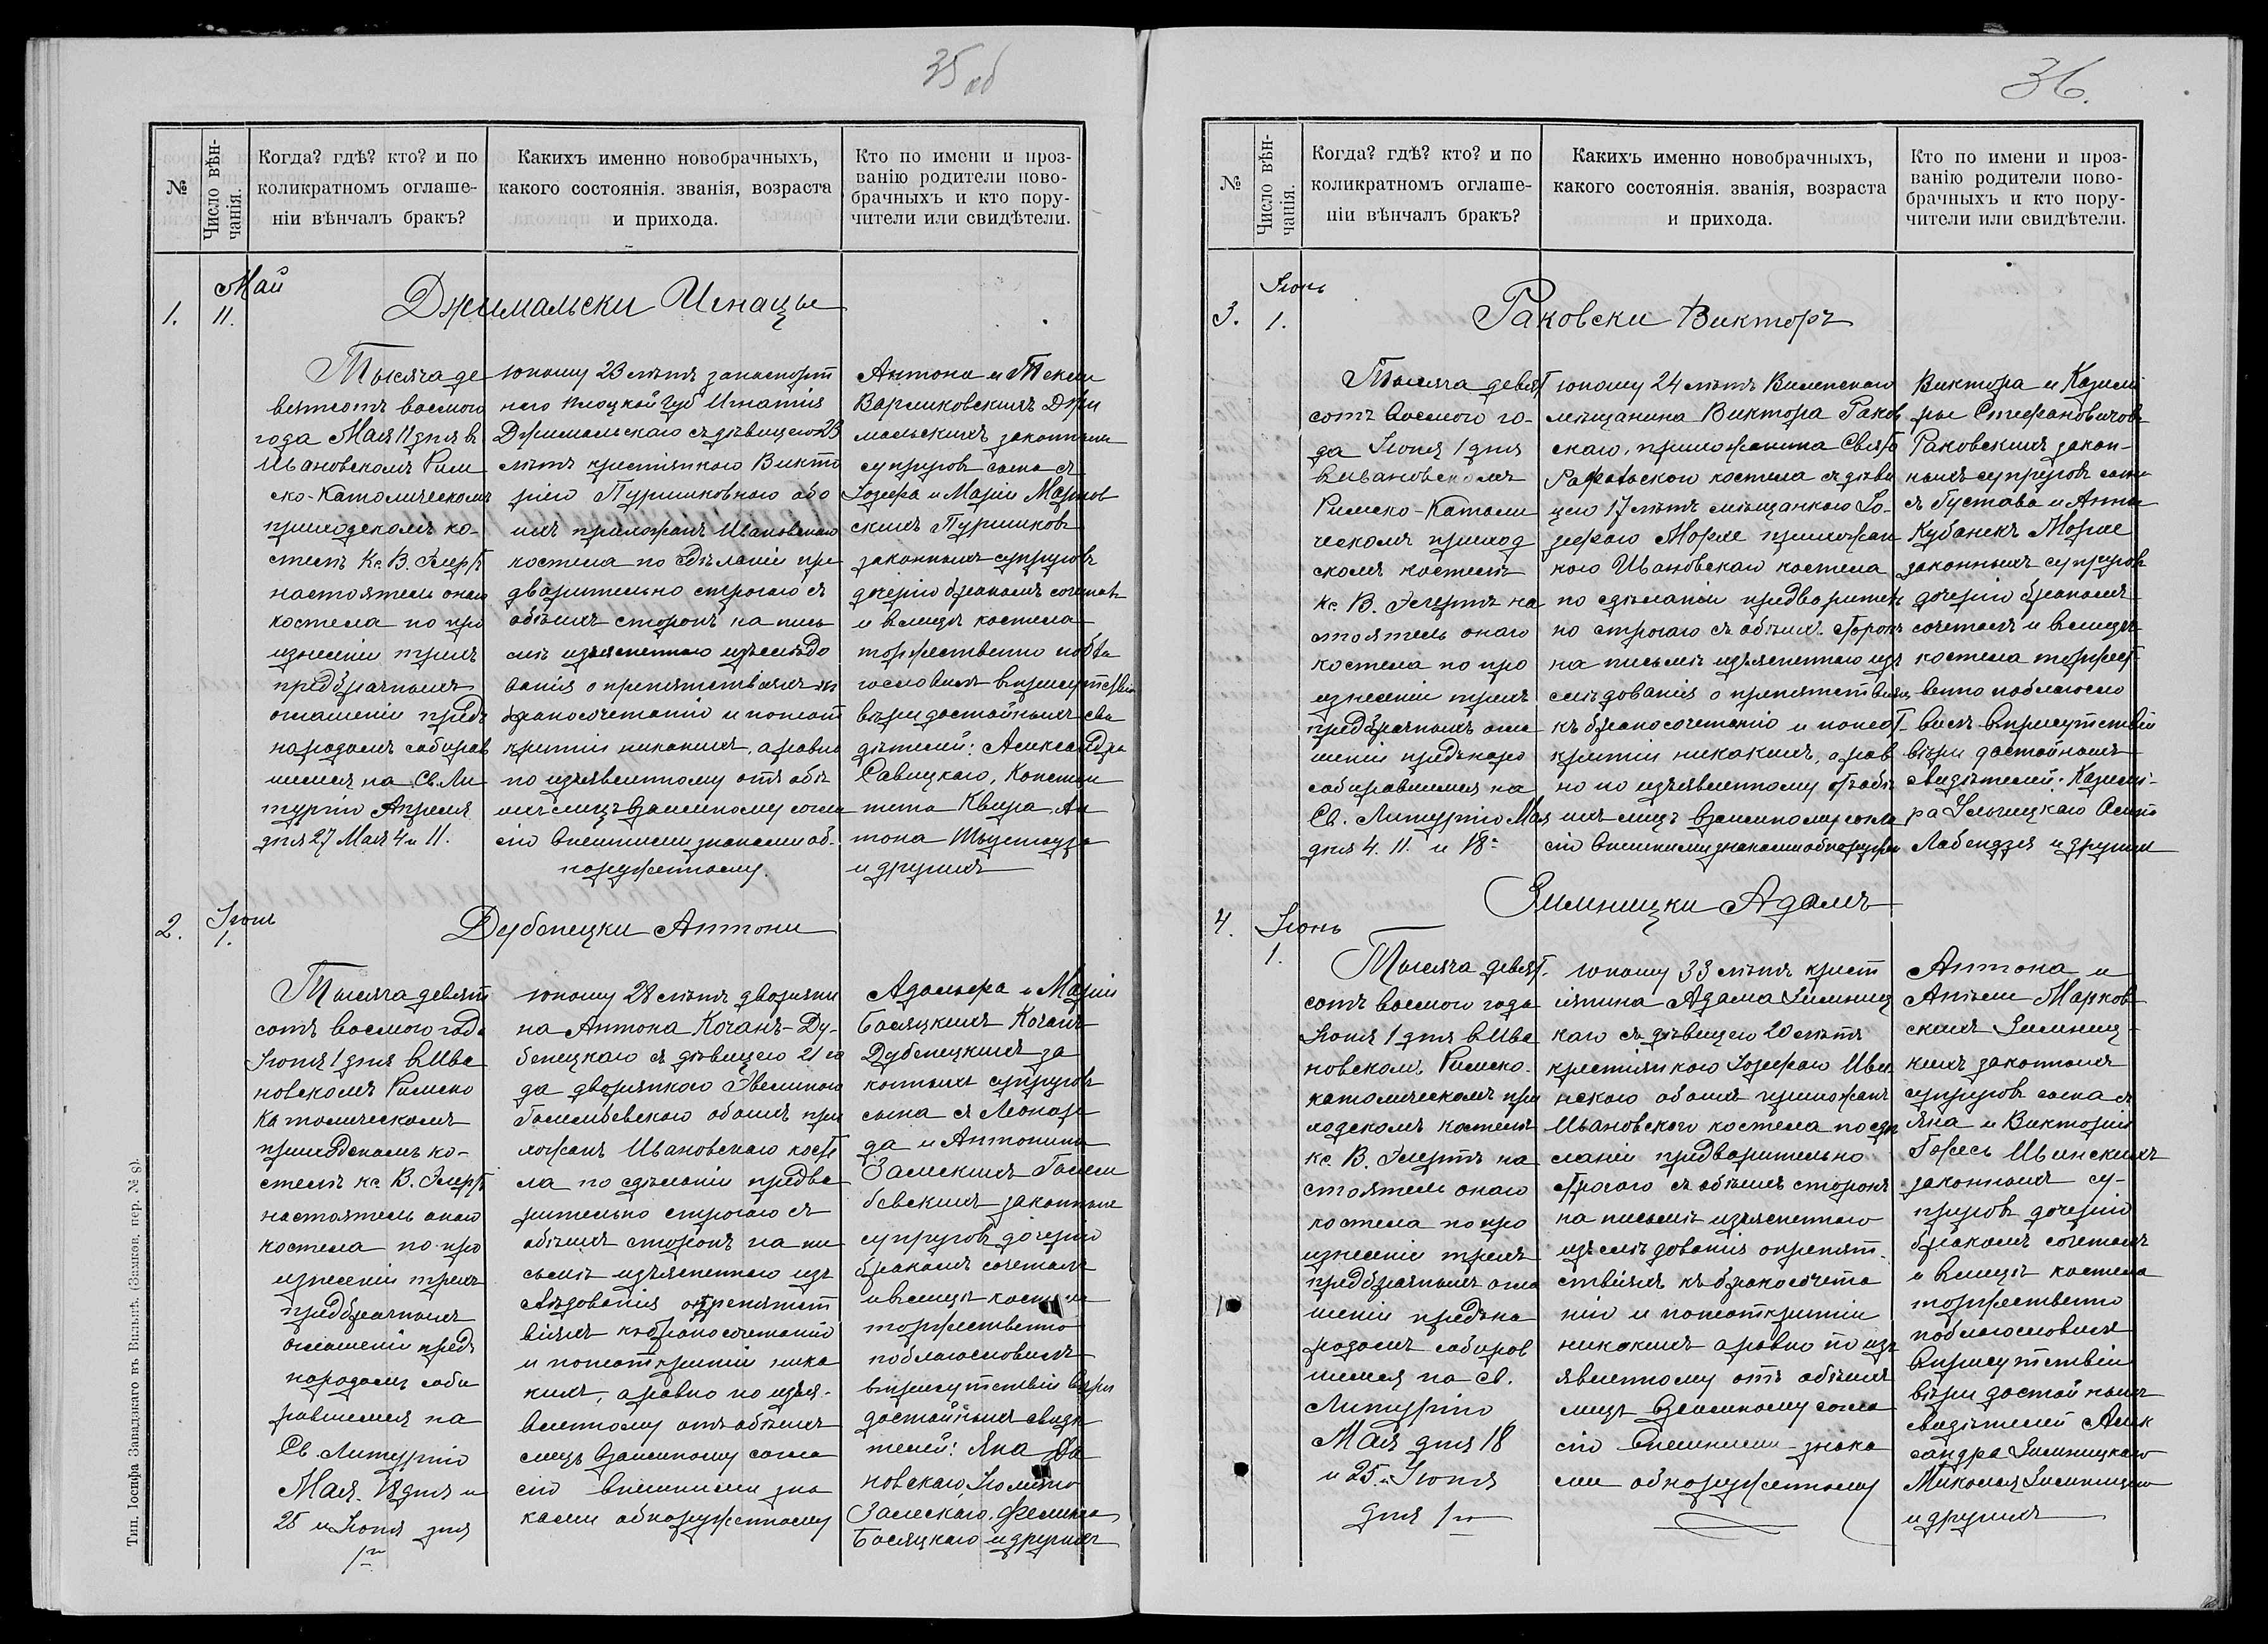 35 об
№
Число вѣн-
чанія.
Когда? гдѣ? кто? и по
коликратномъ оглаше-
ніи вѣнчалъ бракъ?
Какихъ именно новобрачныхъ,
какого состоянія. званія, возраста
и прихода.
Кто по имени и проз-
ванію родители ново-
брачныхъ и кто пору-
чители или свидѣтели.
Май
1. 11.
Джимальски Игнацы
Тысяча де
вятсотъ восмого
года Мая 11 дня въ
Ивановскомъ Рим
ско-Католическомъ
приходскомъ ко-
стелѣ Кс. В.
настоятель онаго
костела по про
изнесеніи трехъ
предбрачныхъ
оглашеній предъ
народомъ собирав
шимся на Св. Ли
тургію Апреля
дня 27 Мая 4 и 11.
юношу 23 лѣтъ запаснорт
наго Плоцкой Губ Игнатія
Джимальскаго съ дѣвицею 23
лѣтъ крестіянкою Викто
ріею Пуршковною обо
ихъ прихожанъ Ивановскаго
костела по сдѣланіи пре
дварительно строгаго съ
обѣихъ сторонъ на пись
мѣ изъясненнаго изслѣдо
ванія о препятствіяхъ къ
бракосочетанію и неот
крытіи никакихъ, а равно
по изъявленному отъ обѣ
ихъ лицъ взаимному согла
сію внешними знаками об-
наруженному.
Антона и Текли
Варликовскихъ Джи
мальскихъ законныхъ
супруговъ сына съ
Іозефа и Маріи Марков
скихъ Пуршковъ
законныхъ супруговъ
дочерію бракомъ сочеталъ
и влицѣ костела
торжественно побла
гословилъ вприсутствіи
вѣры достойныхъ сви
дѣтелей: Александра
Савицкаго, Констан
тина Квира Ан
тона
и другихъ
Іюнь
2. 1.
Дубенецки Антони
Тысяча девят
сотъ восмого года
Іюня 1 дня въ Ива
новскомъ Римско
Католическомъ
приходскомъ ко-
стелѣ кс. В.
настоятель онаго
костела по про
изнесеніи трехъ
предбрачныхъ
оглашеній предъ
народомъ соби
равшимся на
Св. Литургію
Мая. 18 дня и
25 и Іюня дня
1го
юношу 28 лѣтъ дворяни
на Антона Кочанъ-Ду-
бенецкаго съ дѣвицею 21 го
да дворянкою Эвелиною
Голембевскою обоихъ при
хожанъ Ивановскаго косте
ла по сдѣланіи предва
рительно строгаго съ
обѣихъ сторонъ на пи
сьмѣ изъясненнаго изъ
слѣдованія о препятст
віяхъ къ бракосочетанію
и неоткрытіи ника
кихъ, а равно по изъя-
вленному отъ обѣихъ
лицъ взаимному согла
сію внешними зна
ками обнаруженному
Адольфа и Маріи
Босяцкихъ Кочанъ
Дубенецкихъ за
конныхъ супруговъ
сына съ Леонар
да и Антонины
Залескихъ Голем
бевскихъ законныхъ
супруговъ дочерію
бракомъ сочеталъ
и влицѣ костела
торжественно
поблагословилъ
вприсутствіи вѣры
достойныхъ свидѣ
телей: Яна
новскаго,
Залескаго, Феликса
Босяцкаго и другихъ
Тип. Іосифа Завадзкаго въ Вильнѣ. (Замков. пер. № 8).
36.
№
Число вѣн-
чанія.
Когда? гдѣ? кто? и по
коликратномъ оглаше-
ніи вѣнчалъ бракъ?
Какихъ именно новобрачныхъ,
какого состоянія. званія, возраста
и прихода.
Кто по имени и проз-
ванію родители ново-
брачныхъ и кто пору-
чители или свидѣтели.
Іюнь
3. 1.
Раковски Викторъ
Тысяча девят
сотъ восмого го-
да Іюня 1 дня
в Ивановскомъ
Римско-Католи
ческомъ приход
скомъ костелѣ
кс. В. на
стоятель онаго
костела по про
изнесеніи трехъ
предбрачныхъ огла
шеній предънаро
собиравшимся на
Св. Литургію Мая
дня 4. 11. и 18.
юношу 24 лѣтъ Виленскаго
мѣщанина Виктора Раков
скаго, прихожанина Свято
Рафальскаго костела съ дѣви
цею 17 лѣтъ мѣщанкою Іо-
зефою Морле прихожан
кою Ивановскаго костела
по сдѣланіи предваритель
но строгаго съ обѣихъ сторонъ
на письмѣ изъясненнаго изъ
слѣдованія о препятствіяхъ
къ бракосочетанію и неот-
крытіи никакихъ, а рав
но по изъявленному отъ обѣ
ихъ лицъ взаимному согла
сію внешними знаками обнаруж
Виктора и Казими
ры Стефановичовъ
Раковскихъ закон-
ныхъ супруговъ сына
съ Густава и Анны
Кубанекъ Морле
законныхъ супруговъ
дочерію бракомъ
сочеталъ и влицѣ
костела торжест-
венно поблагосло
вилъ вприсутствіи
вѣры достойныхъ
свидѣтелей: Казими-
ра
Лабендзя и другихъ
Зимницки Адамъ
4. Іюнь
1.
Тысяча девят.
сотъ восмого года
Іюня 1 дня в Ива
новскомъ Римско-
католическомъ при
ходскомъ костелѣ
кс. В. на
стоятель онаго
костела по про
изнесеніи трехъ
предбрачныхъ огла
шеній предъ на
родомъ собирав
шимся на св.
Литургію
Мая дня 18
и 25. Іюня
дня 1го
юношу 33 лѣтъ крест
іянина Адама Зимниц
каго съ дѣвицею 20 лѣтъ
крестіянкою Іозефою Иви
нскою обоихъ прихожанъ
Ивановскаго костела по сдѣ
ланіи предварительно
строгаго съ обѣихъ сторонъ
на письмѣ изъясненнаго
изъслѣдованія о препят.
ствіяхъ къ бракосочета
нію и неоткрытіи
никакихъ а равно по изъ
явленному отъ обѣихъ
лицъ взаимному согла
сію внешними знака
ми обнаруженному
Антона и
Анѣли Марков
скихъ Зимниц-
кихъ законныхъ
супруговъ сына съ
Яна и Викторіи
Ивинскихъ
законныхъ су-
пруговъ дочерію
бракомъ сочеталъ
и влицѣ костела
торжественно
поблагословилъ
вприсутствіи
вѣры достойныхъ
свидѣтелей Алек
сандра Зимницкаго
Миколая Зимницкаго
и другихъ